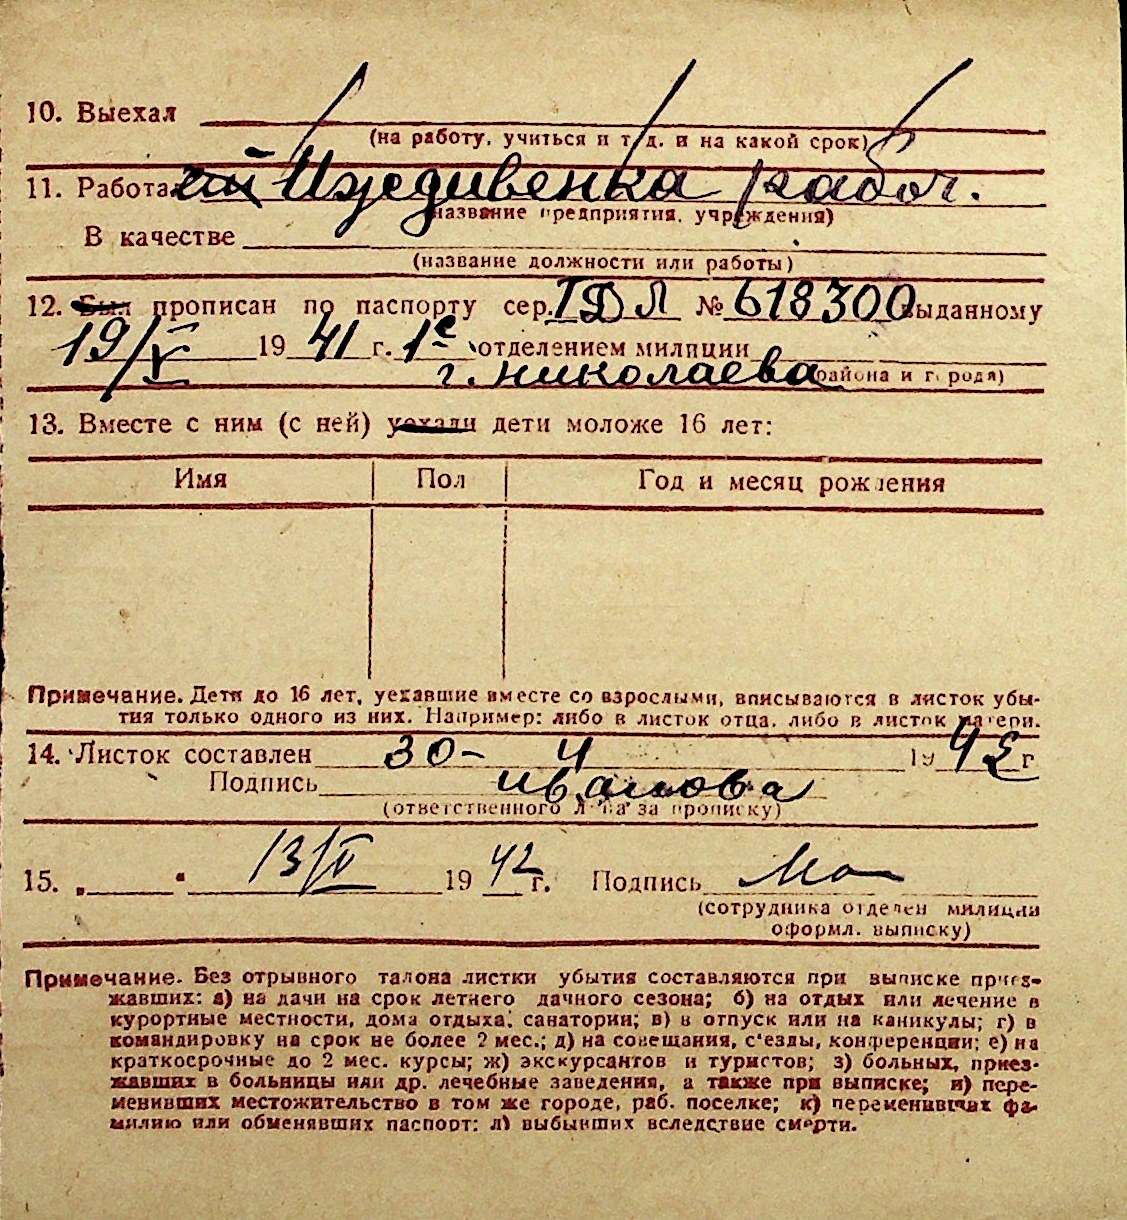 10. Выехал
(на работу, учиться и т. д. и на какой срок)
11. Работа Иждивенка рабоч.
(название предприятия, учреждения)
В качестве
(название должности или работы)
12. Был прописан по паспорту сер. I ДЛ № 618300 выданному
19/V 1941 г. 1е отделением милиции
г. Николаева (района и города)
13. Вместе с ним (с ней) уехали дети моложе 16 лет:
Имя Пол Год и месяц рождения
Примечание. Дети до 16 лет, уехавшие вместе со взрослыми, вписываются в листок убы-
тия только одного из них. Например: либо в листок отца, либо в листок матери.
14. Листок составлен 30- 4 1942 г
Подпись Иванова
(ответственного лица за прописку)
15. „ " 13/V 1942 г. Подпись
(сотрудника отделен милиции
оформл. выписку)
Примечание. Без отрывного талона листки убытия составляются при выписке приез-
жавших: а) на дачи на срок летнего дачного сезона; б) на отдых или лечение в
курортные местности, дома отдыха, санатории; в) в отпуск или на каникулы; г) в
командировку на срок не более 2 мес.; д) на совещания, с'езды, конференции; е) на
краткосрочные до 2 мес. курсы; ж) экскурсантов и туристов; з) больных, приез-
жавших в больницы или др. лечебные заведения, а также при выписке; и) пере-
менивших местожительство в том же городе, раб. поселке; к) переменивших фа-
милию или обменявших паспорт; л) выбывших вследствие смерти.